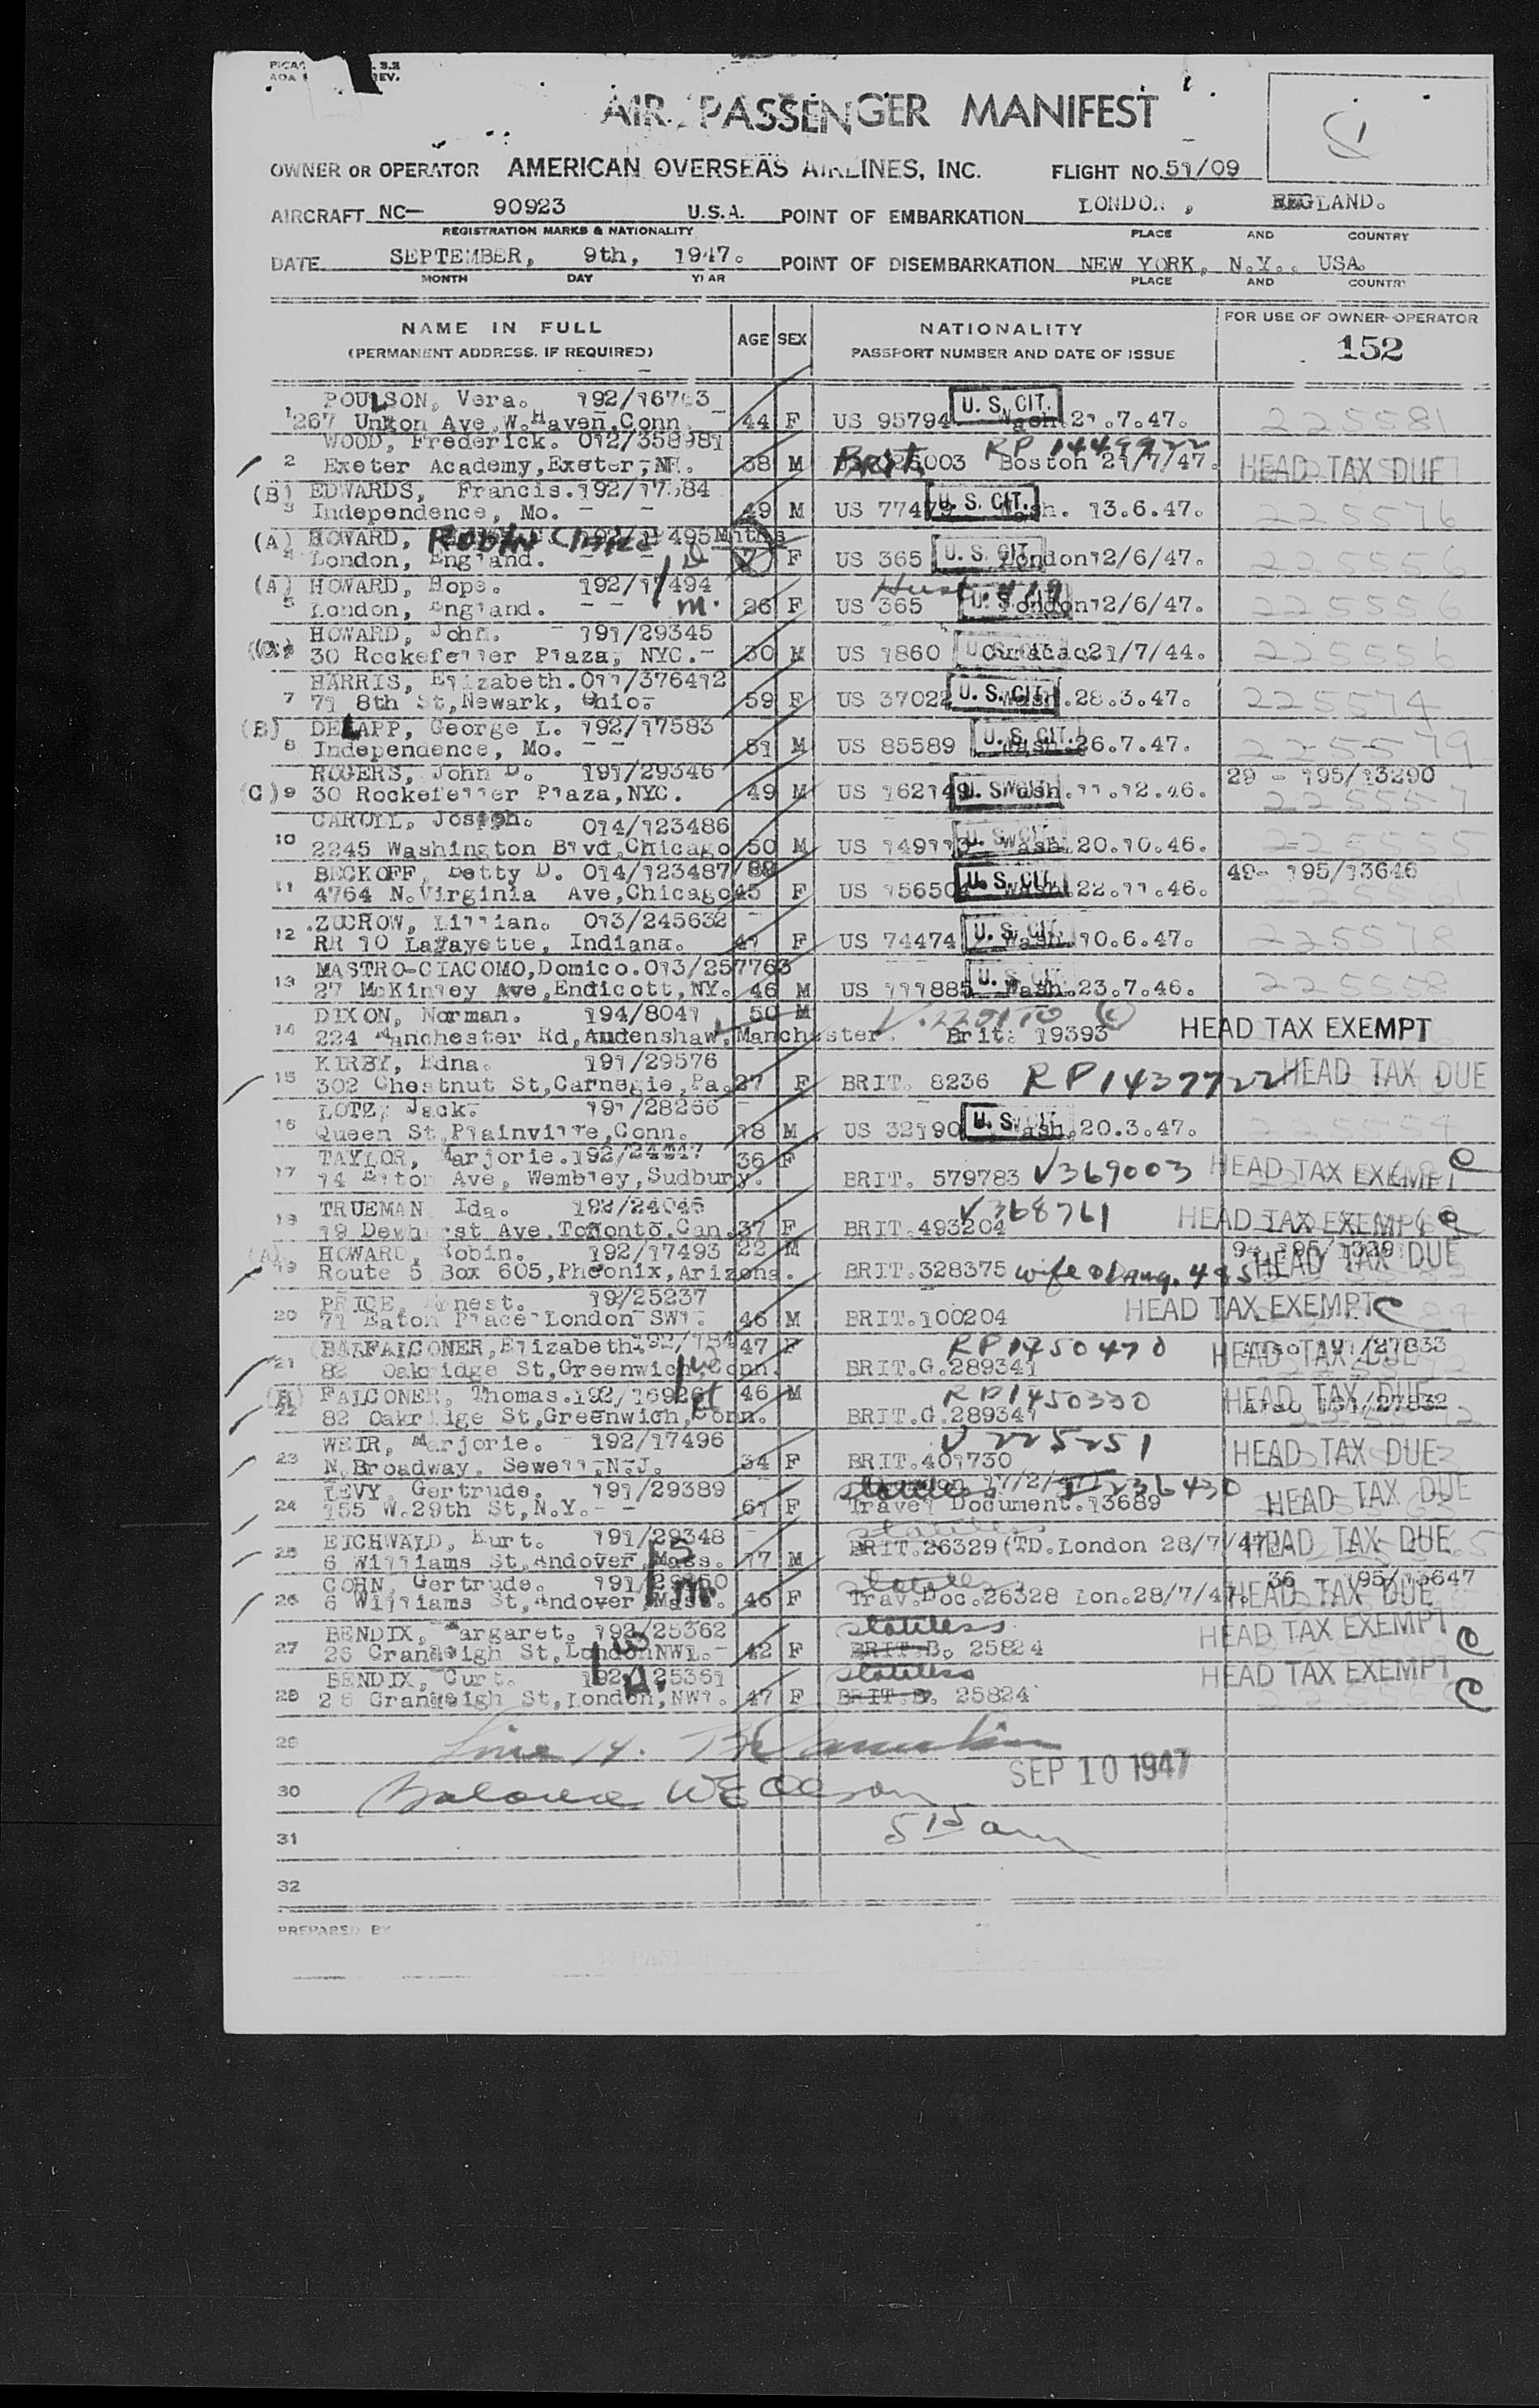 AIR PASSENGER MANIFEST
OWNER OR OPERATOR AMERICAN OVERSEAS AIRLINES, INC. FLIGHT NO. 51/09
AIRCRAFT NC- 90923 U.S.A. POINT OF EMBARKATION LONDON, ENGLAND.
REGISTRATION MARKS & NATIONALITY PLACE AND COUNTRY
DATE SEPTEMBER, 9th, 1947. POINT OF DISEMBARKATION NEW YORK, N.Y.. USA.
MONTH DAY YEAR PLACE AND COUNTRY
NAME IN FULL AGE SEX NATIONALITY FOR USE OF OWNER-OPERATOR
(PERMANENT ADDRESS, IF REQUIRED) PASSPORT NUMBER AND DATE OF ISSUE 152
POULSON, Vera.
1 267 Union Ave,W.Haven,Conn 44 F US 95794 U.S. CIT. Wash.21.7.47. 225581
WOOD, Frederick. 012/358981 RP 1449922
2 Exeter Academy,Exeter,NH. 38 M Brit. Boston 21/7/47. HEAD TAX DUE
(B) EDWARDS, Francis. 192/17584
3 Independence, Mo. 49 M US 77479 U.S. CIT. Wash. 13.6.47. 225576
(A) HOWARD, Mnths
4 London, England. 7 F US 365 U.S. CIT. London12/6/47. 225556
(A) HOWARD, Hope. 192/17494
5 London, England. m. 26 F US 365 U.S. CIT. London12/6/47. 225556
HOWARD, John. 191/29345
30 Rockefeller Plaza, NYC. 30 M US 1860 U.S. CIT. Curacao21/7/44. 225556
HARRIS, Elizabeth. 011/376412
7 71 8th St,Newark, Ohio. 59 F US 37022 U.S. CIT. Wash.28.3.47. 225574
(B) DELAPP, George L. 192/17583
8 Independence, Mo. 51 M US 85589 U.S. CIT. Wash.26.7.47. 225579
ROGERS, John D. 191/29346 29 - 195/13290
(C) 9 30 Rockefeller Plaza,NYC. 49 M US 162149 U.S. CIT. Wash.11.12.46. 225557
CAROLL, Joseph. 014/123486
10 2245 Washington Blvd,Chicago 50 M US 149113 U.S. CIT. Wash.20.10.46.
BECKOFF, Betty D. 014/123487/88 49- 195/13646
11 4764 N.Virginia Ave,Chicago 45 F US 156504 U.S. CIT. Wash.22.11.46.
ZUCROW, Lillian. 013/245632
12 RR 10 Lafayette, Indiana. 41 F US 74474 U.S. CIT. Wash.10.6.47. 225578
MASTRO-CIACOMO,Domico.013/257763
13 27 McKinley Ave,Endicott,NY. 46 M US 111885 U.S. CIT. Wash.23.7.46. 225558
DIXON, Norman. 194/8041 50 M
14 224 Manchester Rd,Audenshaw,Manchester. Brit: 19393 HEAD TAX EXEMPT
KIRBY, Edna. 191/29576
15 302 Chestnut St,Carnegie,Pa. 27 F BRIT. 8236 RP 1437722 HEAD TAX DUE
LOTZ, Jack. 191/28266
16 Queen St,Plainville,Conn. 18 M US 32190 U.S. CIT. Wash.20.3.47.
TAYLOR, Marjorie. 36 F
17 14 Elton Ave, Wembley,Sudbury. BRIT. 579783 V369003 HEAD TAX EXEMPT C
TRUEMAN Ida. 192/24046 V368761
18 19 Dewhurst Ave.Toronto.Can. 37 F BRIT.493204 HEAD TAX EXEMPT C
(A) HOWARD, Robin. 192/17493 22 M
19 Route 5 Box 605,Pheonix,Arizona. BRIT.328375 wife & Daug. 4&5 HEAD TAX DUE
PRICE, Ernest. 19/25237
20 71 Eaton Place London SW1. 46 M BRIT.100204 HEAD TAX EXEMPT C
FALCONER,Elizabeth. 47 F RP1450470
21 82 Oakridge St,Greenwich,Conn. BRIT.G.289341 HEAD TAX DUE
FALCONER, Thomas. 46 M RP1450330
22 82 Oakridge St,Greenwich,Conn. BRIT.G.289341 HEAD TAX DUE
WEIR, Marjorie. 192/17496 V 225251
23 N.Broadway. Sewell,N.J. 34 F BRIT.401730 HEAD TAX DUE
LEVY, Gertrude. 191/29389 stateless
24 155 W.29th St,N.Y. 61 F Travel Document.13689 HEAD TAX DUE
EICHWALD, Kurt. 191/29348 stateless
25 6 Williams St,Andover,Mass. 17 M BRIT.26329(TD.London 28/7/47 HEAD TAX DUE
COHN, Gertrude. stateless 36 195/13647
26 6 Williams St,Andover,Mass. 46 F Trav.Doc.26328 Lon.28/7/47. HEAD TAX DUE
BENDIX, Margaret. 192/25362 stateless
27 26 Cranleigh St,London NW1. 42 F BRIT.B. 25824 HEAD TAX EXEMPT C
BENDIX, Curt. 192/25361 stateless
28 26 Cranleigh St,London,NW1. 47 F BRIT.B. 25824 HEAD TAX EXEMPT C
29 Line 14.
30 Balance SEP 10 1947
31 515 am
32
PREPARED BY